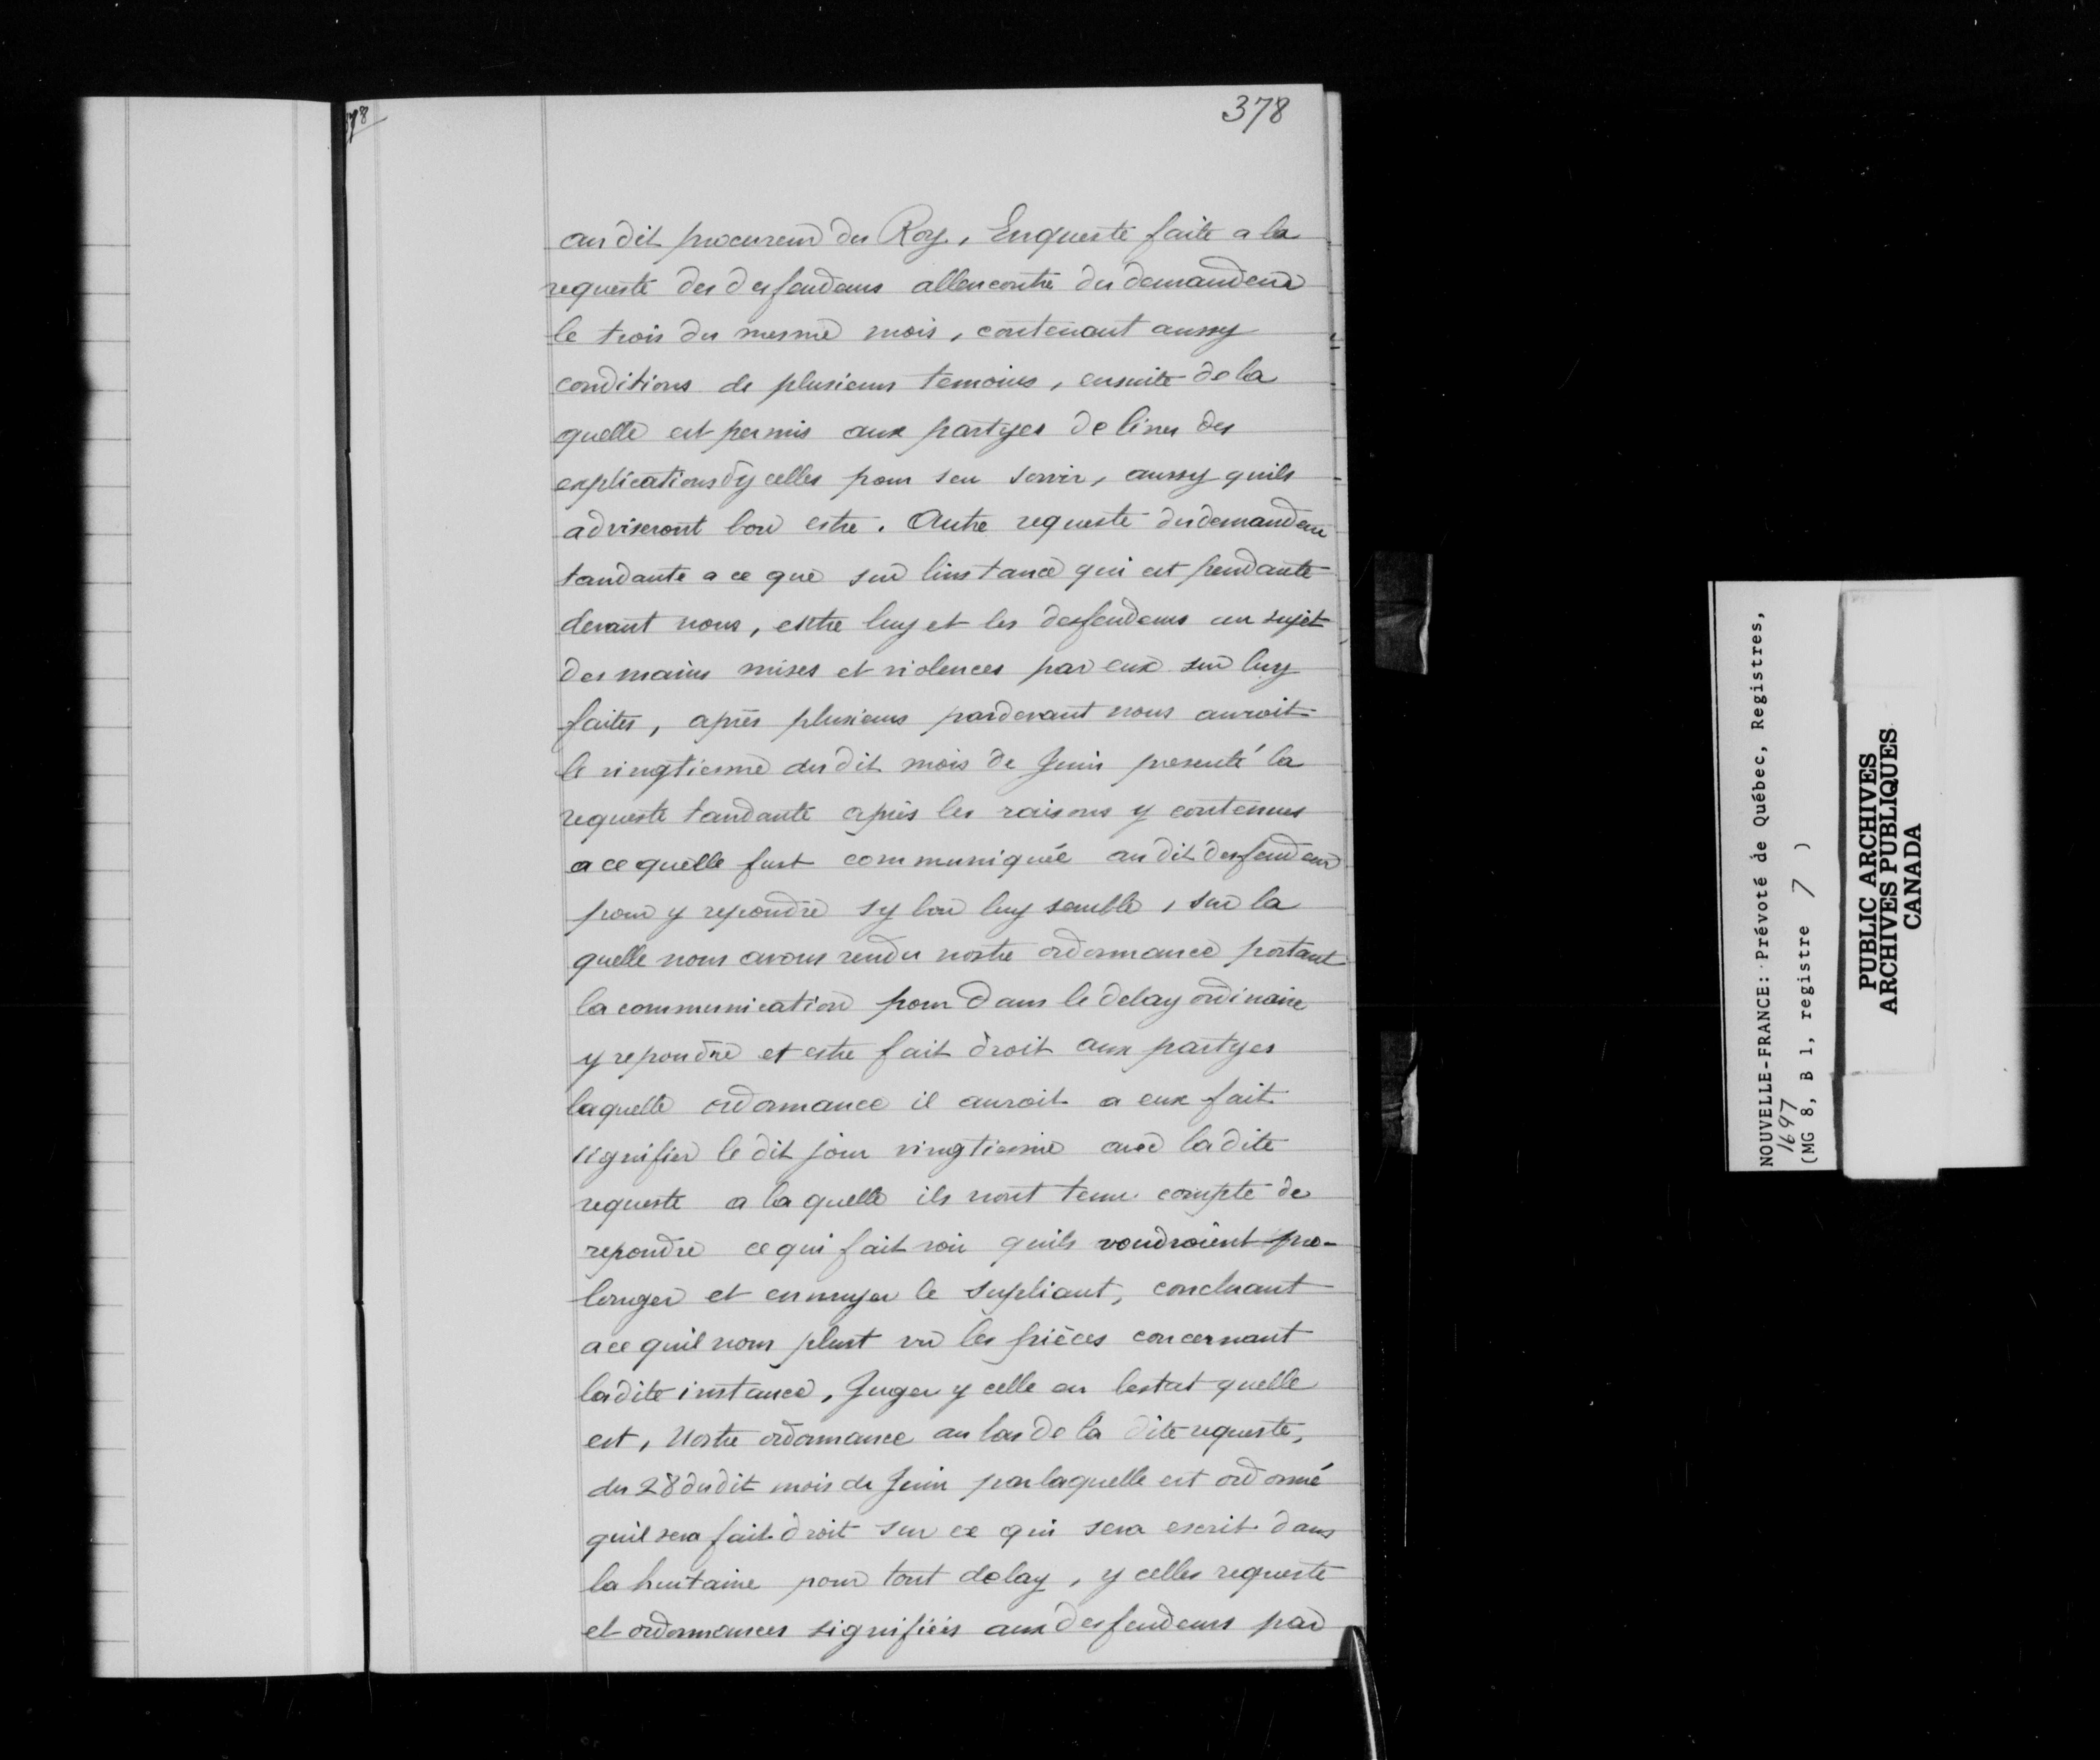 378
378
au dit procureur du Roy, Enqueste faite a la
requeste des desfendeurs allencontre du demandeur
le trois du mesme mois, contenant aussy
conditions de plusieurs temoins, ensuite de la
quelle est permis aux partyes de liver des
explications dycelles pour sen servir, aussy quils
adviseront bon estre. Autre requeste du demandeur
tandante a ce que sur linstance qui est pendante
devant nous, entre luy et les desfendeurs au sujet
des mains mises et violences par eux sur luy
faites, après plusieurs pardevant nous auroit
le vingtiesme du dit mois de Juin presenté la
requeste tandante après les raisons y contenues
a ce quelle fust communiquée au dit desfendeur
pour y repondre sy bon luy semble, sur la
quelle nous avons rendu nostre ordonnance portant
la communication pour dans le delay ordinaire
y repondre et estre fait droit aux partyes
laquelle ordonnance il auroit a eux fait
signifier le dit jour vingtiesme avec la dite
requeste a la quelle ils nont tenu compte de
repondre ce qui fait voir quils voudroient pro-
longer et ennuyer le supliant, concluant
a ce quil nous plust vu les pièces concernant
la dite instance, Juger y celle en lestat quelle
est, Nostre ordonnance au bas de la dite requeste,
du 28 du dit mois de Juin par laquelle est ordonné
quil sera fait droit sur ce qui sera escrit dans
la huitaine pour tout delay, y celles requeste
et ordonnances signifiées aux desfendeurs par
NOUVELLE-FRANCE: Prévoté de Québec, Registres,
1697
(MG 8, B 1, registre 7 )
PUBLIC ARCHIVES
ARCHIVES PUBLIQUES
CANADA